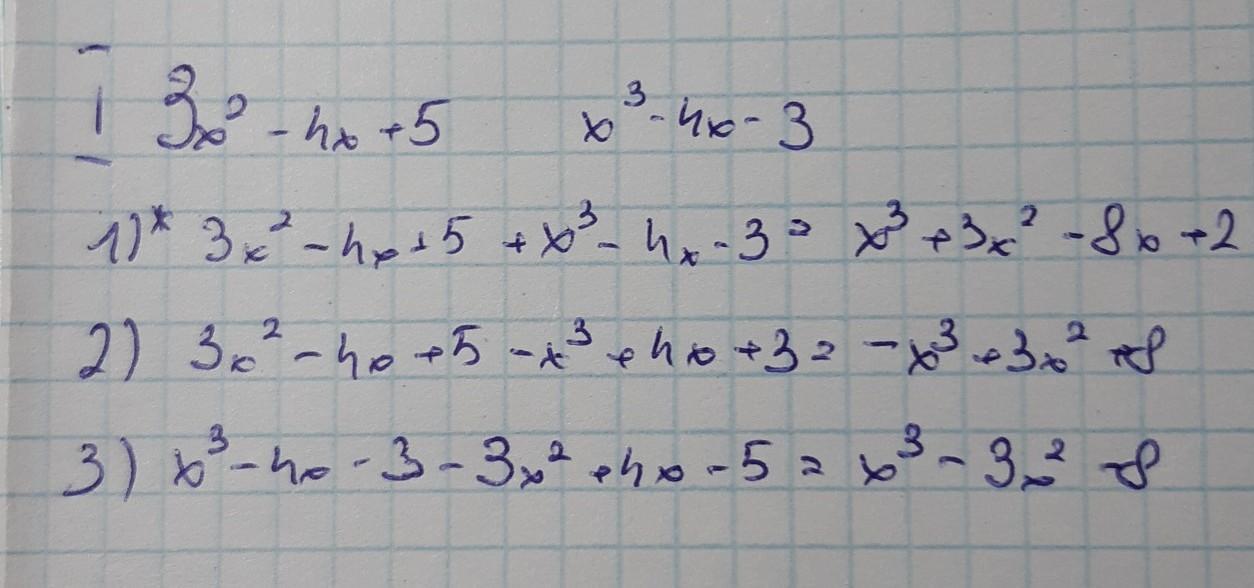 I 3x² - 4x + 5 x³ - 4x - 3
1)* 3x² - 4x + 5 + x³ - 4x - 3 = x³ + 3x² - 8x + 2
2) 3x² - 4x + 5 - x³ + 4x + 3 = - x³ + 3x² + 8
3) x³ - 4x - 3 - 3x² + 4x - 5 = x³ - 3x² - 8